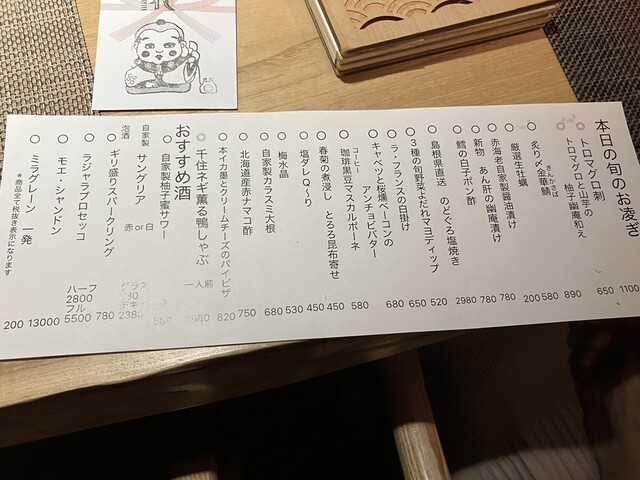 本日の旬のお凌ぎ
○ トロマグロ刺 1100
トロマグロと山芋の 柚子幽庵和え 650
○ 炙り〆金華鯖 890
きんかさば
○ 厳選生牡蠣 580
○ 赤海老自家製醤油漬け 200
○ 新物 あん肝の幽庵漬け 780
○ 鱈の白子ポン酢 780
○ 島根県直送 のどぐろ塩焼き 2980
○ 3種の旬野菜よだれマヨディップ 520
○ ラ・フランスの白掛け 650
○ キャベツと桜燻ベーコンの アンチョビバター 680
○ 珈琲黒豆マスカルポーネ 580
コーヒー
○ 春菊の煮浸し とろろ昆布寄せ 450
○ 塩ダレQ〜り 450
○ 梅水晶 530
○ 自家製カラスミ大根 680
○ 北海道産赤ナマコ酢 750
○ 本イカ墨とクリームチーズのパイピザ 820
○ 千住ネギ薫る鴨しゃぶ 一人前
おすすめ酒
○ 自家製柚子蜜サワー
自家製
○ サングリア 赤or白
泡酒
○ ギリ盛りスパークリング 780
○ ラジャラプロセッコ ハーフ 2800 フル 5500
○ モエ・シャンドン 13000
○ ミラグレーン 一発 200
※商品全て税抜き表示になります